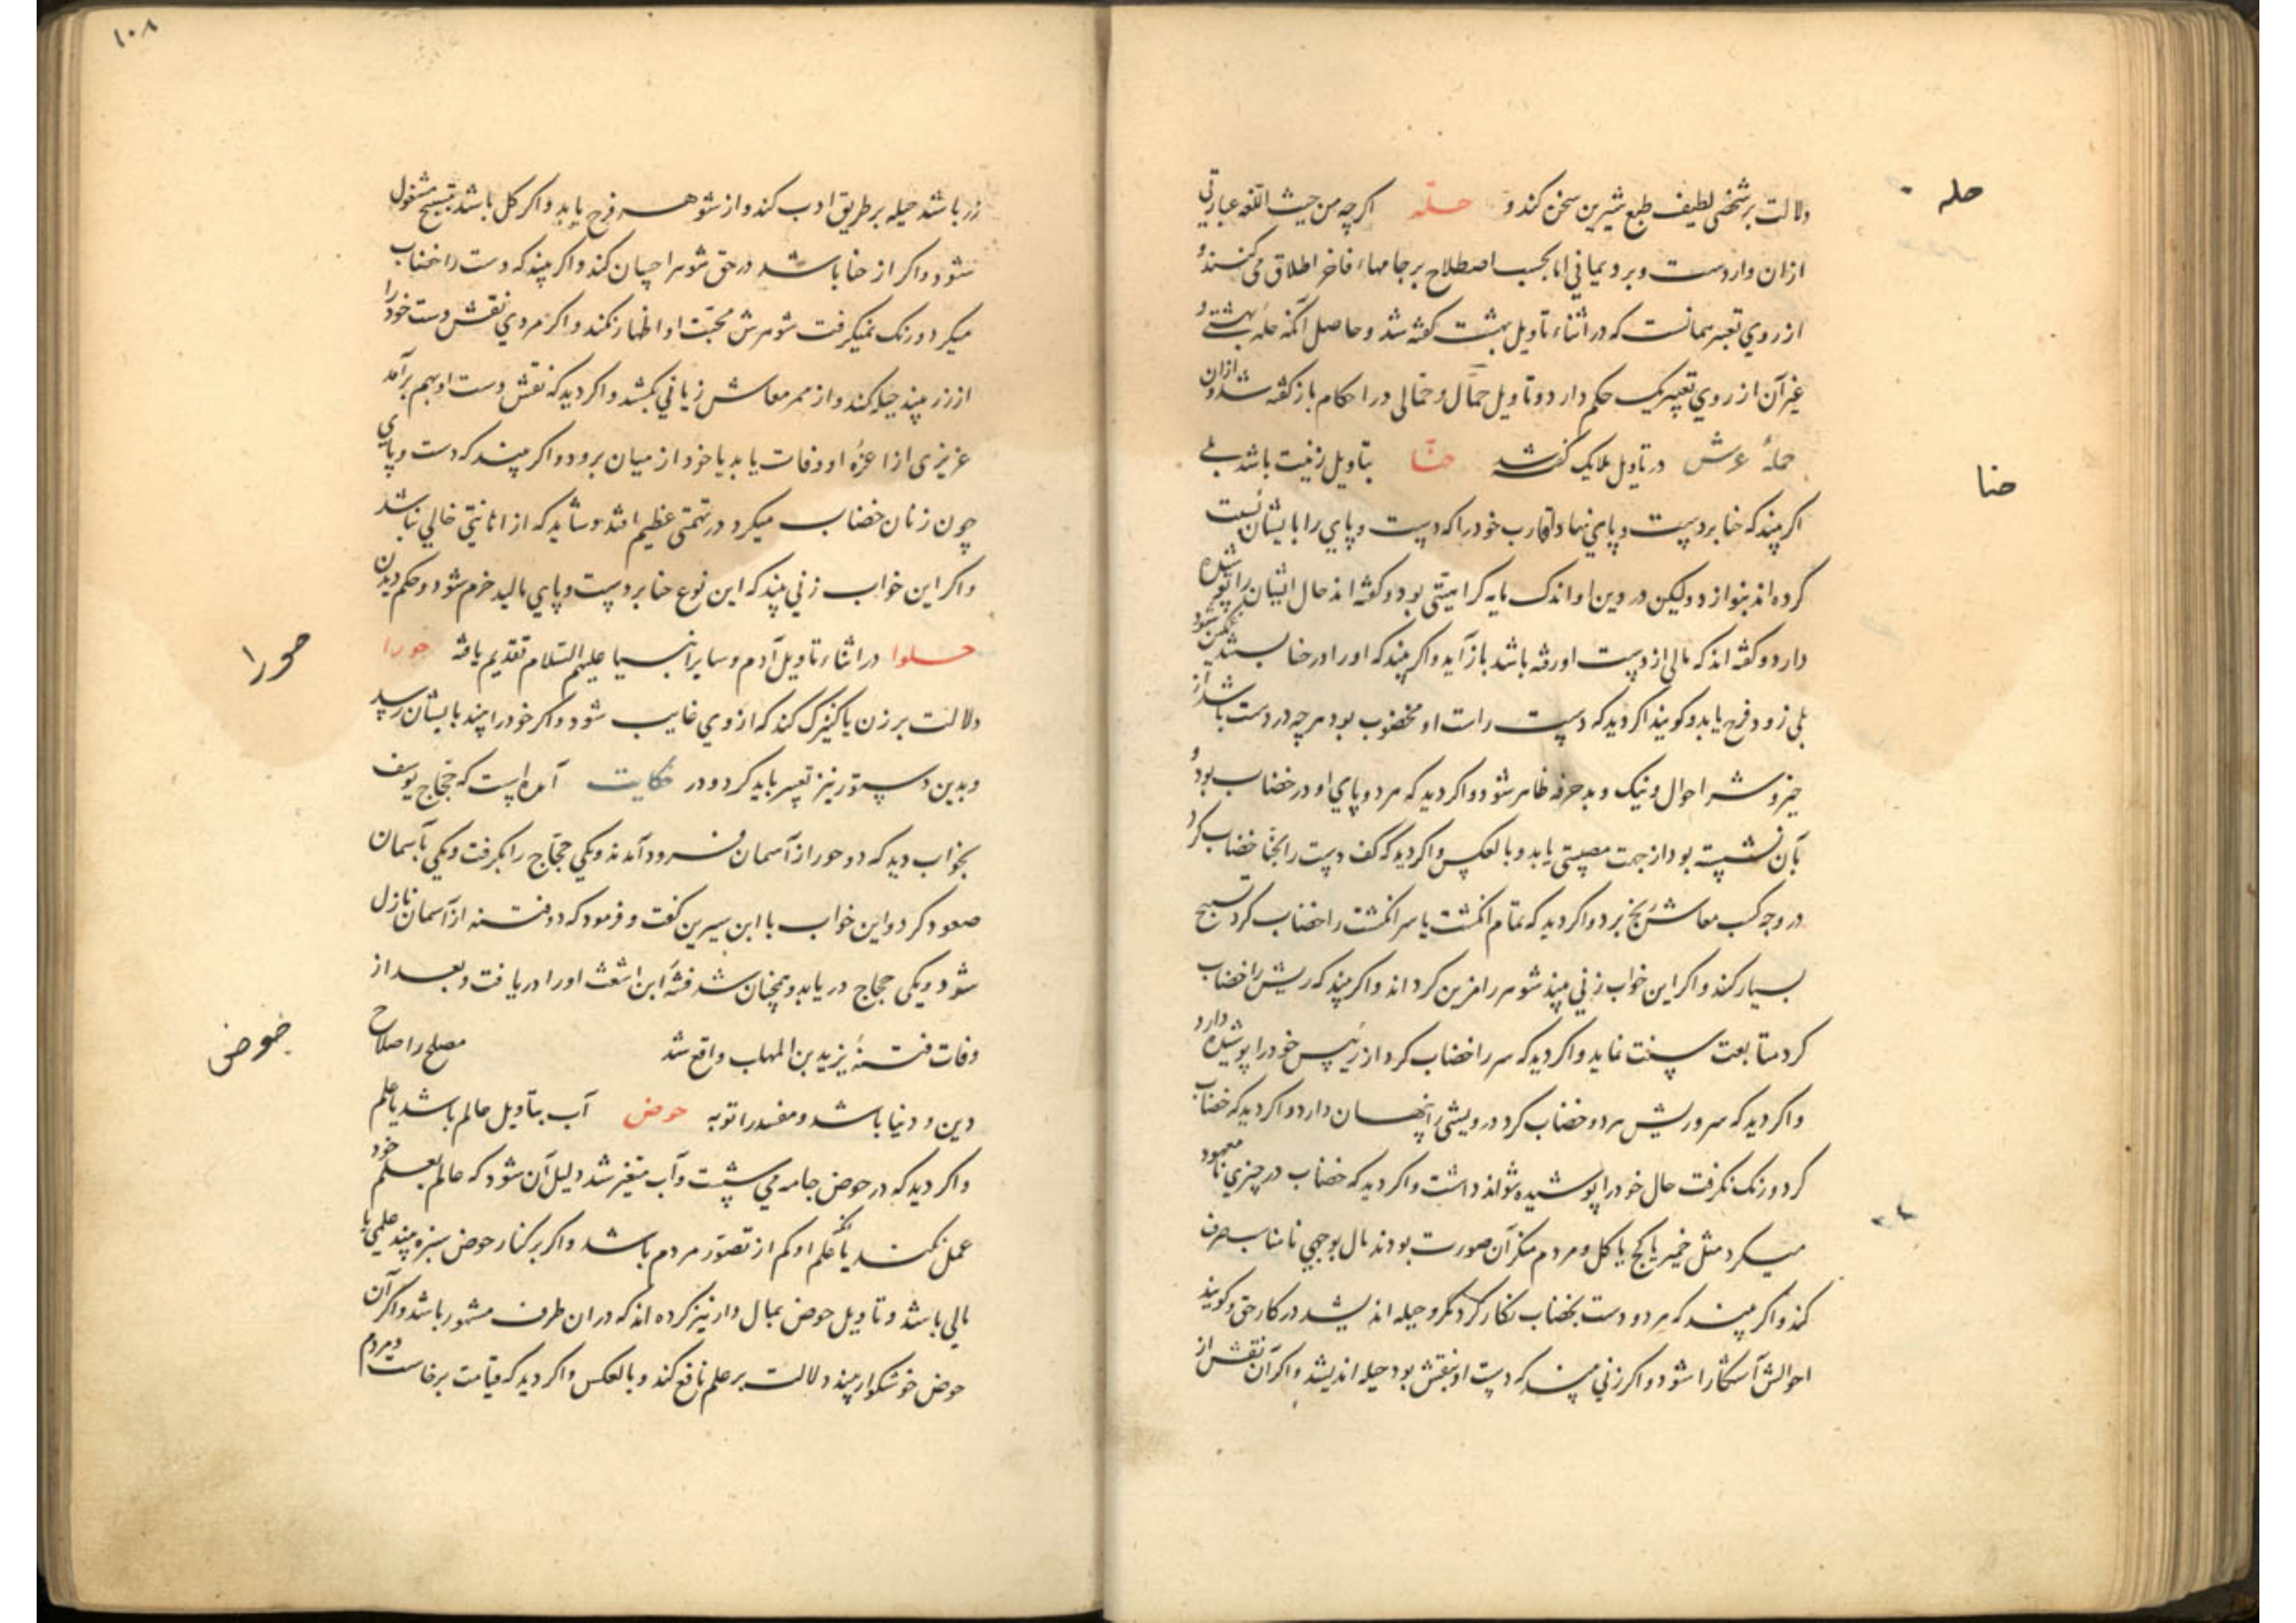 حله
دلالت بر شخصی لطیف طبع شیرین سخن کند و حله اکرچه من حیث اللغه عبارتی
ازان وارد است و برد یمانی اما بحسب اصطلاح بر جامهاء فاخر اطلاق می کنند و
از روی تعبیر همانست که در اثناء تاویل بهشت کفته شد و حاصل آنکه حله بهشتی و
غیر آن از روی تعبیر یک حکم دارد و تاویل حمال و حمالی در احکام باز کفته شد و ازان
حملهٔ عرش در تاویل ملایک کفته شد حنا بتاویل زینت باشد بلی
حنا
اکر بیند که حنا بر دست و پای نهاد اقارب خود را که دست و پای را بایشان نسبت
کرده اند بنوازد و لیکن در دین او اندک مایه کراهیتی بود و کفته اند حال ایشان را پوشیده
دارد و کفته اند که مالی از دست او رفته باشد باز آید و اکر بیند که او را در حنا بستند غمکین شود
بلی زود فرح یابد و کویند اکر دید که دست راست او مخضوب بود هرچه در دست باشد از
خیر و شر احوال و نیک و بد حرفه ظاهر شود و اکر دید که هر دو پای او در خضاب بود و
بآن نشسته بود از جهت مصیبتی یابد و بالعکس و اکر دید که کف دست را بحنا خضاب کرد
در وجه کسب معاش رنج برد و اکر دید که تمام انکشت یا سر انکشت را خضاب کرد تسبیح
بسیار کند و اکر این خواب زنی بیند شوهر را قرین کرداند و اکر بیند که ریش را خضاب
کرد متابعت سنت نماید و اکر دید که سر را خضاب کرد از رئیس خود را پوشیده دارد
و اکر دید که سر و ریش هر دو خضاب کرد درویشی را پنهان دارد و اکر دید که خضاب
کرد و رنک نکرفت حال خود را پوشیده نتواند داشت و اکر دید که خضاب در چیزی نامعهود
میکرد مثل خمیر یا کچ یا کل و مردم منکر آن صورت بودند مال بوجهی نامناسب صرف
کند و اکر بیند که هر دو دست بخضاب نکار کرد مکر و حیله اندیشد در کار حق و کویند
احوالش آشکارا شود و اکر زنی بیند که دست او بنقش بود حیله اندیشد و اکر آن نقش از
۱۰۸
زر باشد حیله بر طریق ادب کند و از شوهر فرح یابد و اکر کل باشد بتسبیح مشغول
شود و اکر از حنا باشد در حق شوهر احسان کند و اکر بیند که دست را خضاب
میکرد و رنک نمیکرفت شوهرش محبت او اظهار نکند و اکر مردی نقش دست خود را
از زر بیند حیله کند و از ممر معاش زیانی بکشد و اکر دید که نقش دست او بهم برآمد
عزیزی از اعزهٔ او وفات یابد یا خود از میان برود و اکر بیند که دست و پای
چون زنان خضاب میکرد در تهمتی عظیم افتد و شاید که از انانیتی خالی نباشد
و اکر این خواب زنی بیند که این نوع حنا بر دست و پای مالید خرم شود و حکم دیدن
حلوا در اثناء تاویل آدم و سایر انبیا علیهم السلام تقدیم یافته حورا
حورا
دلالت بر زن یا کنیزک کند که از وی غایب شود و اکر خود را بیند بایشان رسید
و بدین دستور نیز تعبیر باید کرد و در حکایت آمده است که حجاج یوسف
بخواب دید که دو حور از آسمان فرود آمدند و یکی حجاج را بکرفت و یکی بآسمان
صعود کرد و این خواب با ابن سیرین کفت و فرمود که دو فتنه از آسمان نازل
شود و یکی حجاج دریابد و همچنان شد فتنهٔ ابن اشعث او را دریافت و بعد از
وفات فتنهٔ یزید بن المهلب واقع شد مصلح را صلاح
حوض
دین و دنیا باشد و مفسد را توبه حوض آب بتاویل عالم باشد یا علم
و اکر دید که در حوض جامه می شست و آب متغیر شد دلیل آن شود که عالم بعلم خود
عمل نکند یا آنکه علم او کم از تصور مردم باشد و اکر بر کنار حوض سبزه بیند علمی یا
مالی باشد و تاویل حوض بمال دار نیز کرده اند که دران طرف مشهور باشد و اکر آن
حوض خوشکوار بیند دلالت بر علم نافع کند و بالعکس و اکر دید که قیامت برخاست و مردم